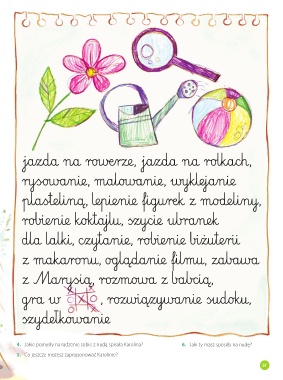 jazda na rowerze, jazda na rolkach,
rysowanie, malowanie, wyklejanie
plasteliną, lepienie figurek z modeliny,
robienie koktajlu, szycie ubranek
dla lalki, czytanie, robienie biżuterii
z makaronu, oglądanie filmu, zabawa
z Marysią, rozmowa z babcią,
gra w , rozwiązywanie sudoku,
szydełkowanie
4. Jakie pomysły na radzenie sobie z nudą spisała Karolina?
5. Co jeszcze możesz zaproponować Karolinie?
6. Jaki ty masz sposób na nudę?